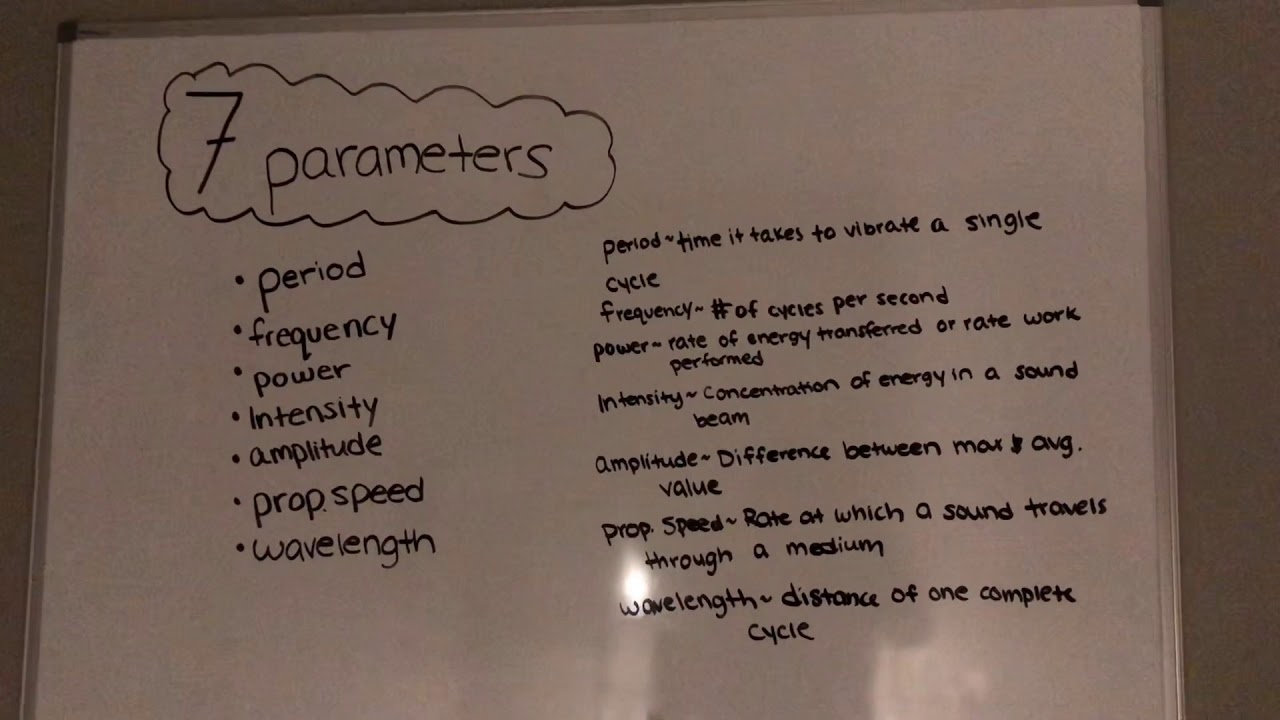 7 parameters
• period
• frequency
• power
• Intensity
• amplitude
• prop. speed
• wavelength
period~time it takes to vibrate a single
cycle
frequency~ # of cycles per second
power~ rate of energy transferred or rate work
performed
Intensity~ Concentration of energy in a sound
beam
amplitude~ Difference between max & avg.
value
prop. Speed~ Rate at which a sound travels
through a medium
wavelength~ distance of one complete
cycle